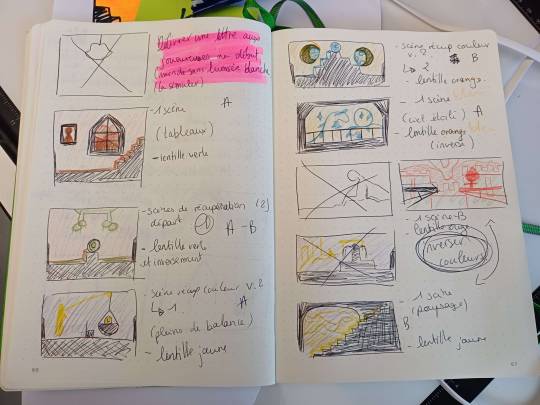 Délivrer une lettre aux
joueureuses au début
monde sans lumière blanche
(à simuler)
- 1 scène A
(tableaux)
- lentille verte
- scènes de récupération (2)
départ 1 A - B
- lentille verte
et inversement
- scène récup couleur v. 2
↳ 1. A
(plateau de balance)
- lentille jaune
- scène récup couleur
v. 2 B
↳ 2
- lentille orange
- 1 scène
(ciel étoilé) A
- lentille orange
(inverse)
- 1 scène - B
- lentille
inverser
couleurs
- 1 scène
(paysage)
B
- lentille jaune